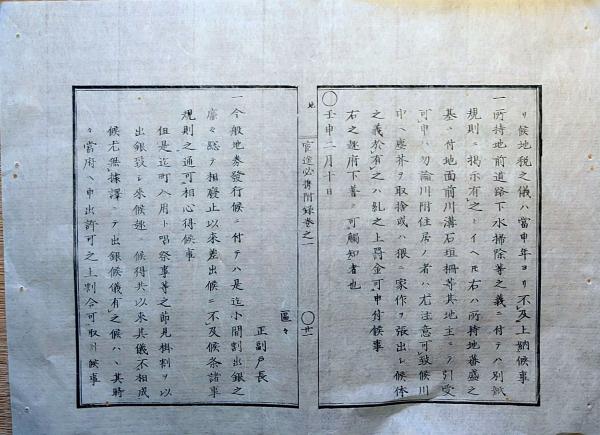 リ候地税之儀ハ當申年ヨリ不及上納候事
一所持地前道路下水掃除等之義ニ付テハ別紙
規則ニ掲示有之トイヘ𪜈右ハ所持地番盛之
基ニ付地面前川溝石垣柵等其地主ニテ引受
可申ハ勿論川附住居ノ者ハ尤注意可致候川
中ヘ塵芥ヲ取捨或ハ猥ニ家作ヲ張出シ候体
之義於有之ハ糺之上罰金可申付候事
右之趣府下著ニ可觸知者也
〇壬申二月十日
官途必携附録巻之一
〇廿一
正副戸長
區々
一今般地券發行候ニ付テハ是迄小間割出銀之
廉々總テ相廢止以来差出候ニ不及候条諸事
規則之通可相心得候事
但是迄町入用ト唱祭事等之節見掛割ヲ以
出銀致シ来候趣ニ候得共以来其儀不相成
候尤無據譯ニテ出銀候儀有之候ハヽ其時
々當府ヘ申出許可之上割合可取計候事